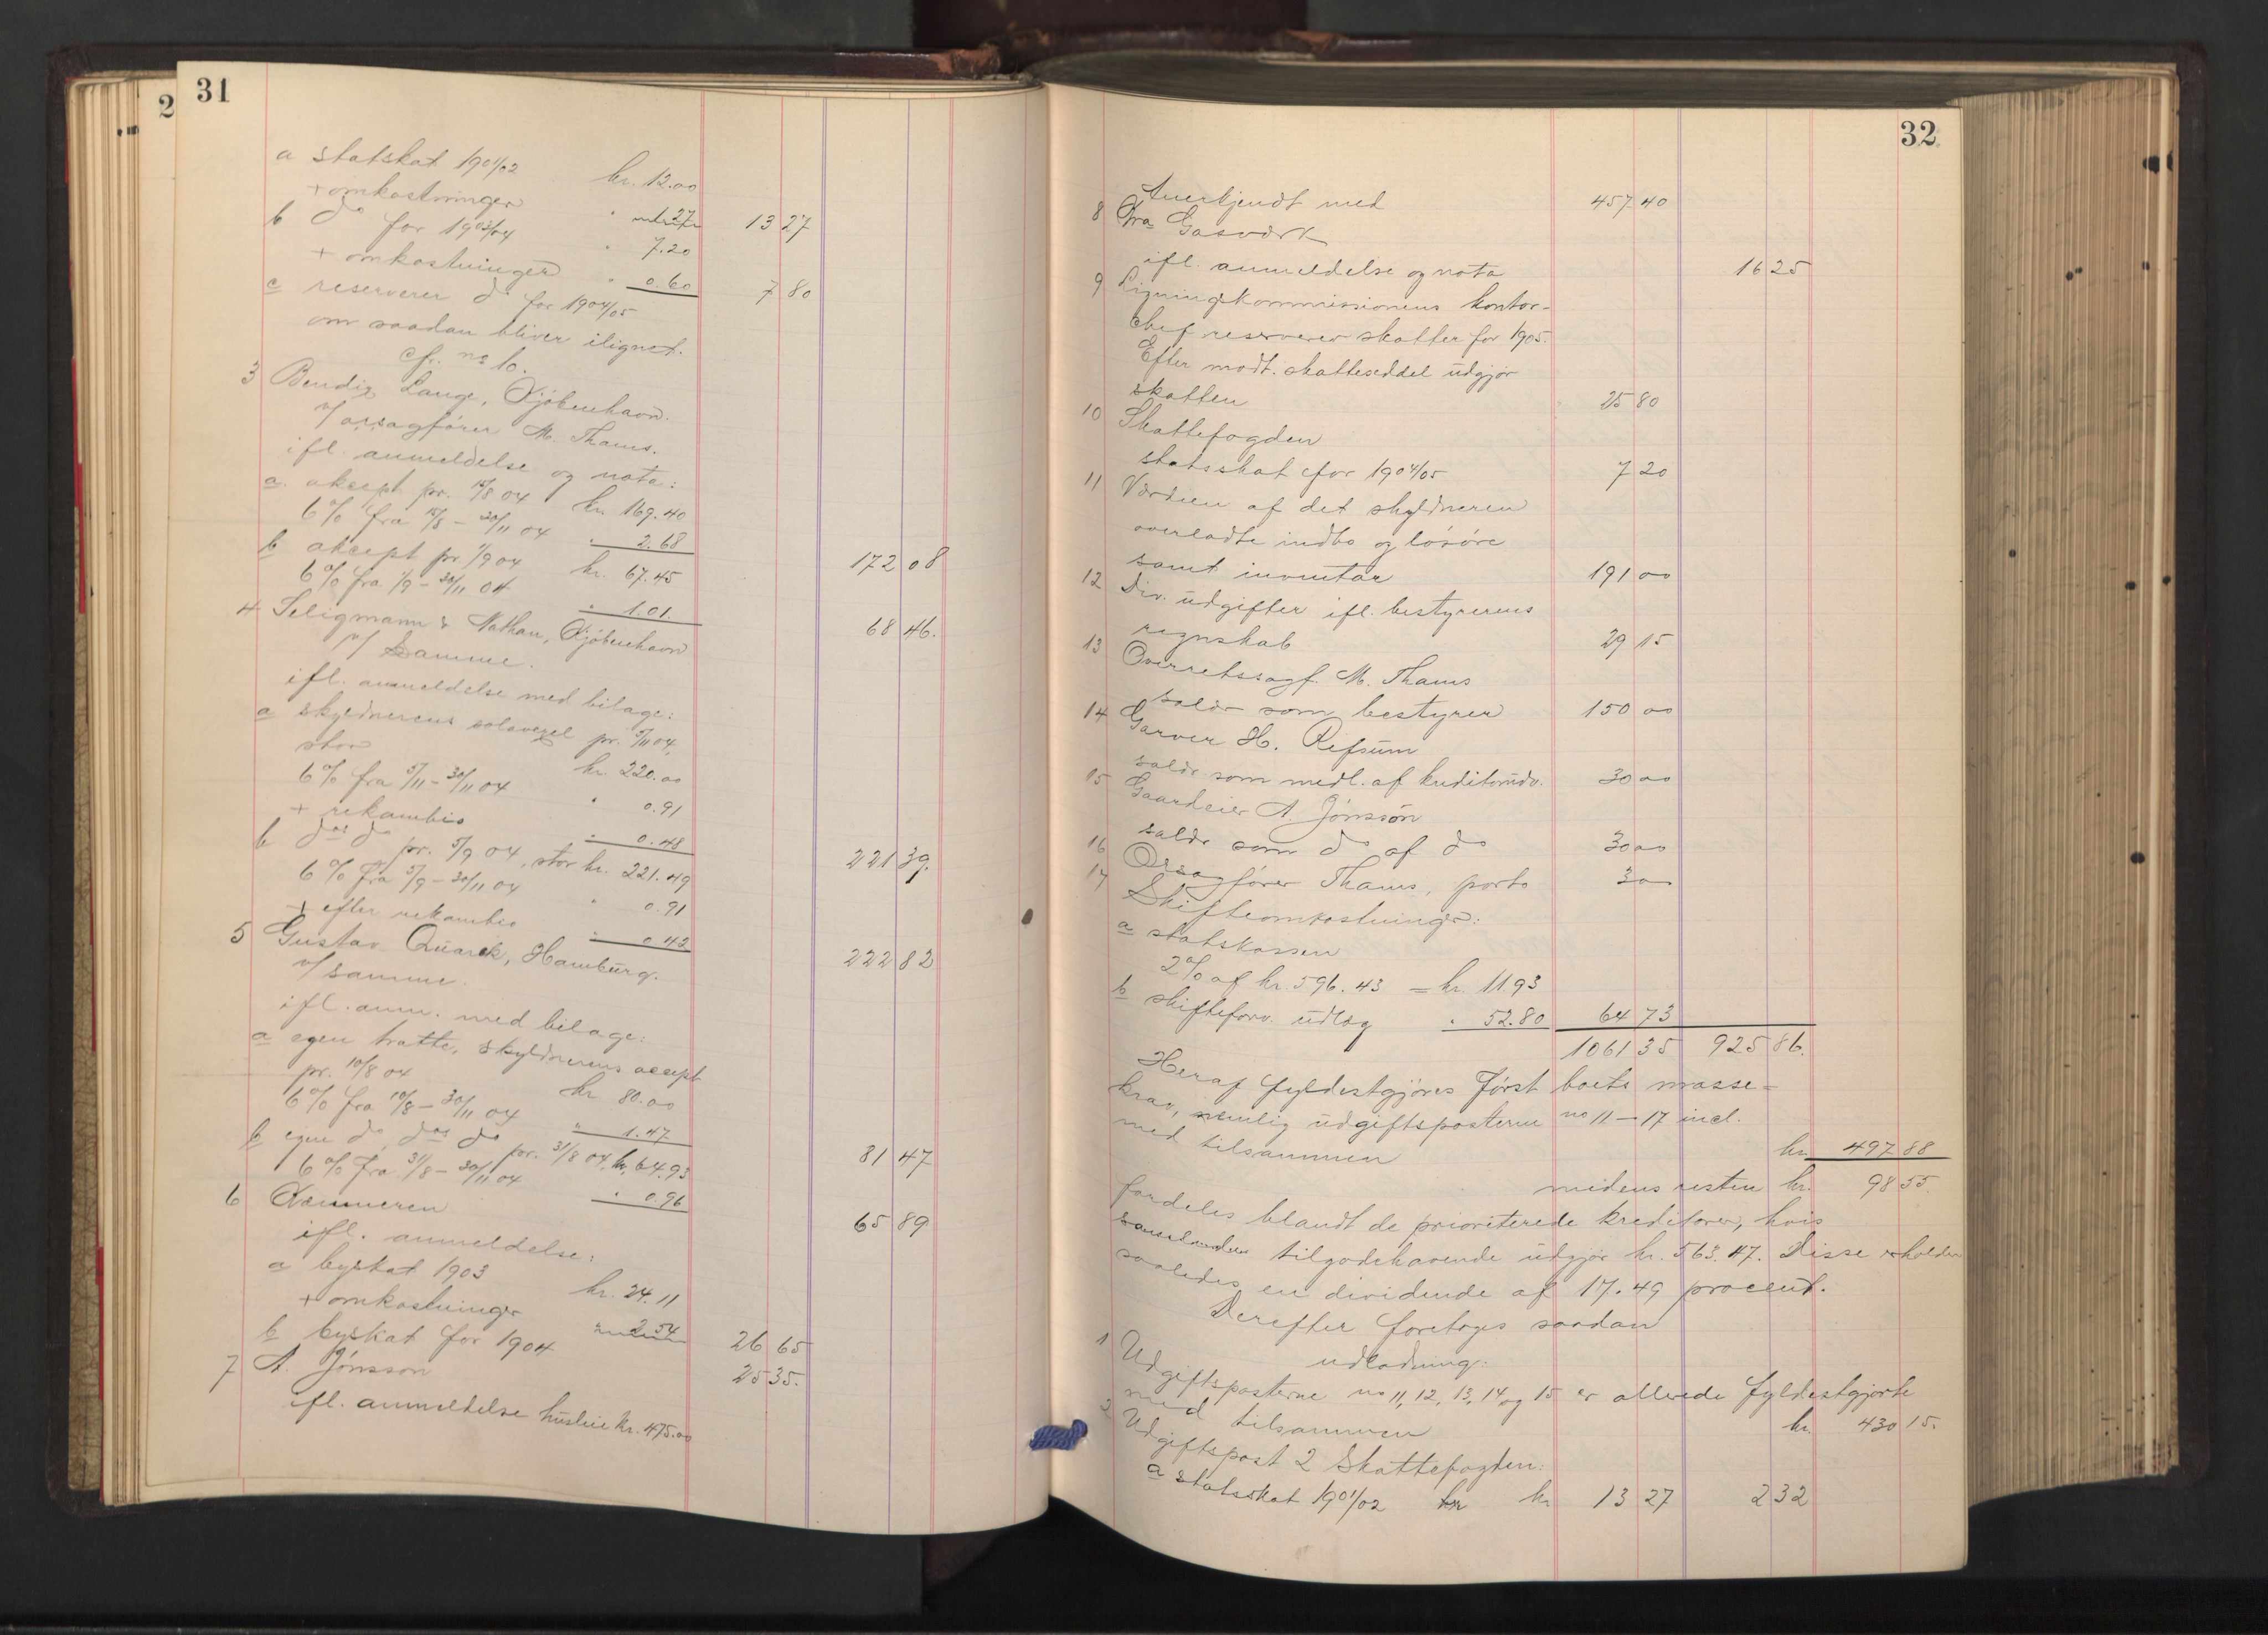 2
31
a statskat 1901/02 kr. 12.00
+ omkostninger " 1.27 13 27
b do for 1903/04 " 7.20
+ omkostninger " 0.60 7 80
c reserverer do for 1904/05
om saadan bliver ilignet.
cfr. no 10.
3 Bendix Lange, Kjöbenhavn.
v/ orsagfører M. Thams.
ifl. anmeldelse og nota:
a. aksept pr. 15/8 04 kr. 169.40
6% fra 15/8 – 30/11 04 " 2.68 172 08
b aksept pr 1/9 04 kr. 67.45
6% fra 1/9 – 30/11 04 " 1.01. 68 46.
4 Seligmann & Nathan, Kjöbenhavn
v/ Samme.
ifl. anmeldelse med bilage:
a skyldnerens solavexel pr. 5/11 04,
stor kr. 220.00
6% fra 5/11 – 30/11 04 " 0.91
+ rekambio " 0.48 221 39.
b dos do pr. 5/9 04, stor kr. 221.49
6% fra 5/9 – 30/11 04 " 0.91
+ efter rekambio " 0.42 222 82
5 Gustav Quarck, Hamburg.
v/ samme.
ifl. anm. med bilage:
a egen tratte, skyldnerens accept
pr. 10/8 04 kr 80.00
6% fra 10/8 – 30/11 04 " 1.47 81 47
b egen do, dos do pr. 31/8 04, kr. 64.93
6% fra 31/8 – 30/11 04 " 0.96 65 89
6 Kæmneren
ifl. anmeldelse:
a byskat 1903 kr. 24.11
+ omkostninger 2.54 26 65
b byskat for 1904 25 35.
7 A. Jönsson
ifl. anmeldelse husleie kr. 475.00
32
Anerkjendt med 457 40
8 Fra Gasværk
ifl. anmeldelse og nota 16 25
9 Ligningskommissionens kontor-
chef reserverer skatter for 1905.
Efter modt. skatteseddel udgjør
skatten 25 80
10 Skattefogden
statsskat for 1904/05 7 20
11 Værdien af det skyldneren
overladte indbo og løsøre
samt inventar 191 00
12 Div. udgifter ifl. bestyrerens
regnskab 29 15
13 Overretssagf. M. Thams
salær som bestyrer 150 00
14 Garver H. Refsum
salær som medl. af kreditorudv. 30 00
15 Gaardeier A. Jönsson
salær som do af do 30 00
16 Orsagfører Thams, porto 3 00
17 Skifteomkostninger:
a statskassen
2% af kr. 596.43 = kr. 11 93
b skifteforv. udlæg " 52.80 64 73
1061 35 925 86.
Heraf fyldestgjøres først boets masse=
krav, nemlig udgiftsposterne no 11 – 17 incl.
med tilsammen kr. 497 88
medens resten kr. 98 55.
fordeles blandt de prioriterede kreditorer, hvis
tilgodehavende udgjør kr. 563.47. Disse erholder
saaledes en dividende af 17.49 procent.
Derefter foretages saadan
udlodning:
1 Udgiftsposterne no 11, 12, 13, 14 og 15 er allerede fyldestgjorte
med tilsammen kr. 430 15.
2 Udgiftspost 2 Skattefogden:
a statsskat 1901/02 kr 13 27 2 32